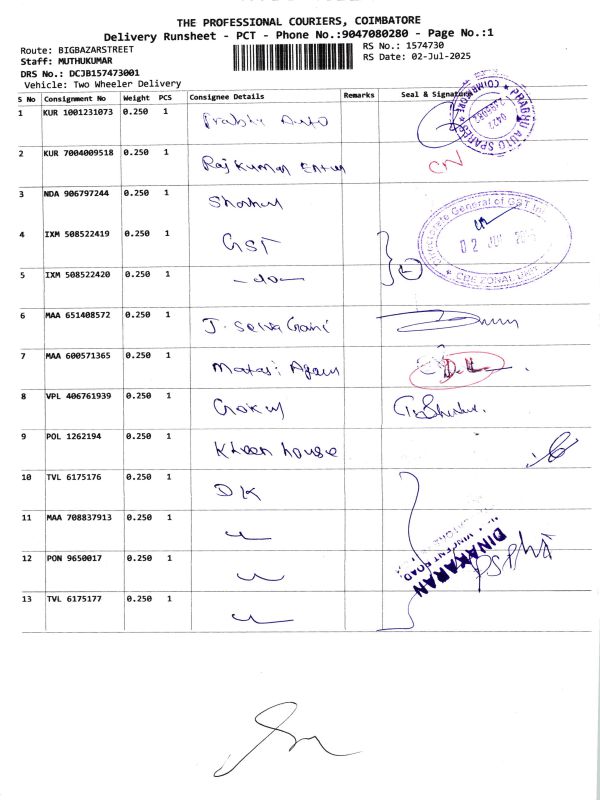 THE PROFESSIONAL COURIERS, COIMBATORE
Delivery Runsheet - PCT - Phone No.:9047080280 - Page No.:1
Route: BIGBAZARSTREET
RS No.: 1574730
Staff: MUTHUKUMAR
RS Date: 02-Jul-2025
DRS No.: DCJB157473001
Vehicle: Two Wheeler Delivery
S No Consignment No Weight PCS Consignee Details Remarks Seal & Signature
1 KUR 1001231073 0.250 1 Prabhu Auto
PRABHU AUTO SPARES * COIMBATORE *
0422
2 KUR 7004009518 0.250 1 Raj Kumar CN
3 NDA 906797244 0.250 1
Directorate General of GST
02
* CBE ZONAL UNIT *
4 IXM 508522419 0.250 1 GST
5 IXM 508522420 0.250 1 -do- 2
6 MAA 651408572 0.250 1 J. Selva Gani
7 MAA 600571365 0.250 1 Mataji
8 VPL 406761939 0.250 1 Gokul
9 POL 1262194 0.250 1 Khaan house
10 TVL 6175176 0.250 1 DK
11 MAA 708837913 0.250 1 "
DINAKARAN
ROAD,
12 PON 9650017 0.250 1 "
13 TVL 6175177 0.250 1 "